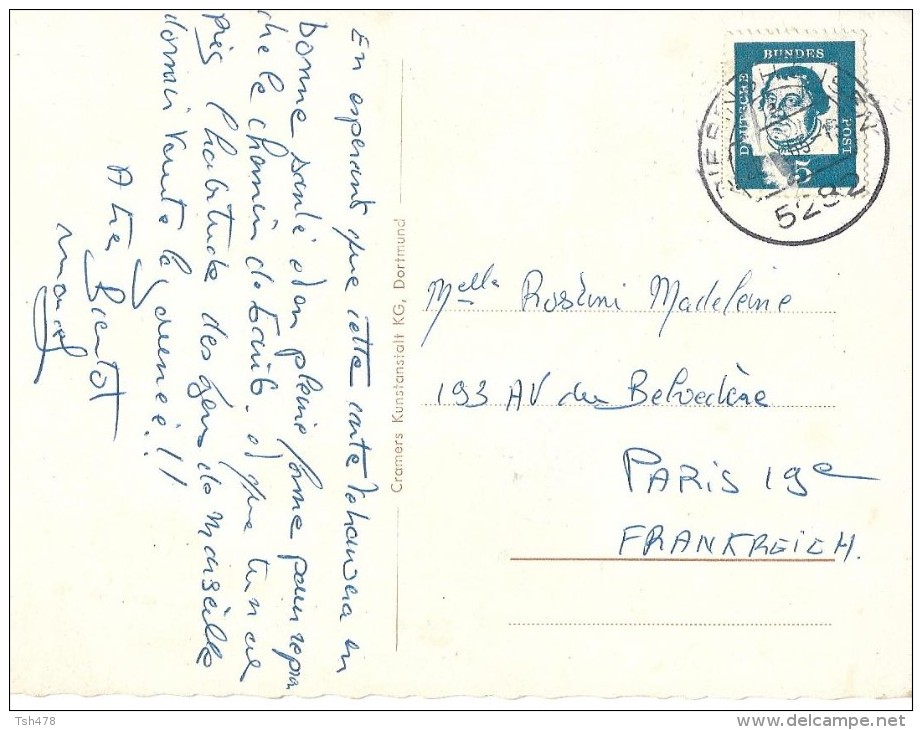 En esperant que cette carte te trouvera en
bonne santé et en pleine forme pour repren
dre le chemin de Paris. et que tu n'ai
pas l'habitude des gens de Marseille
dormir toute la journée!!
A très bientot
DEUTSCHE BUNDES POST
15
5282
Cramers Kunstanstalt KG, Dortmund
Melle Rossini Madeleine
193 AV du Belvedère
PARIS 19e
FRANKREICH.
Tsh478
delcampe.net